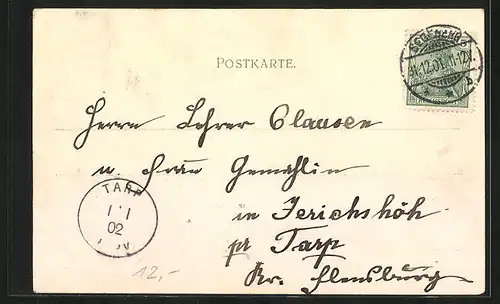 POSTKARTE.
31.12.01. 11-12V.
Herrn Lehrer Clausen
u. Frau Gemahlin
in Jerichshöh
pr Tarp
Kr. Flensburg
TARP
1/1
02
12,-